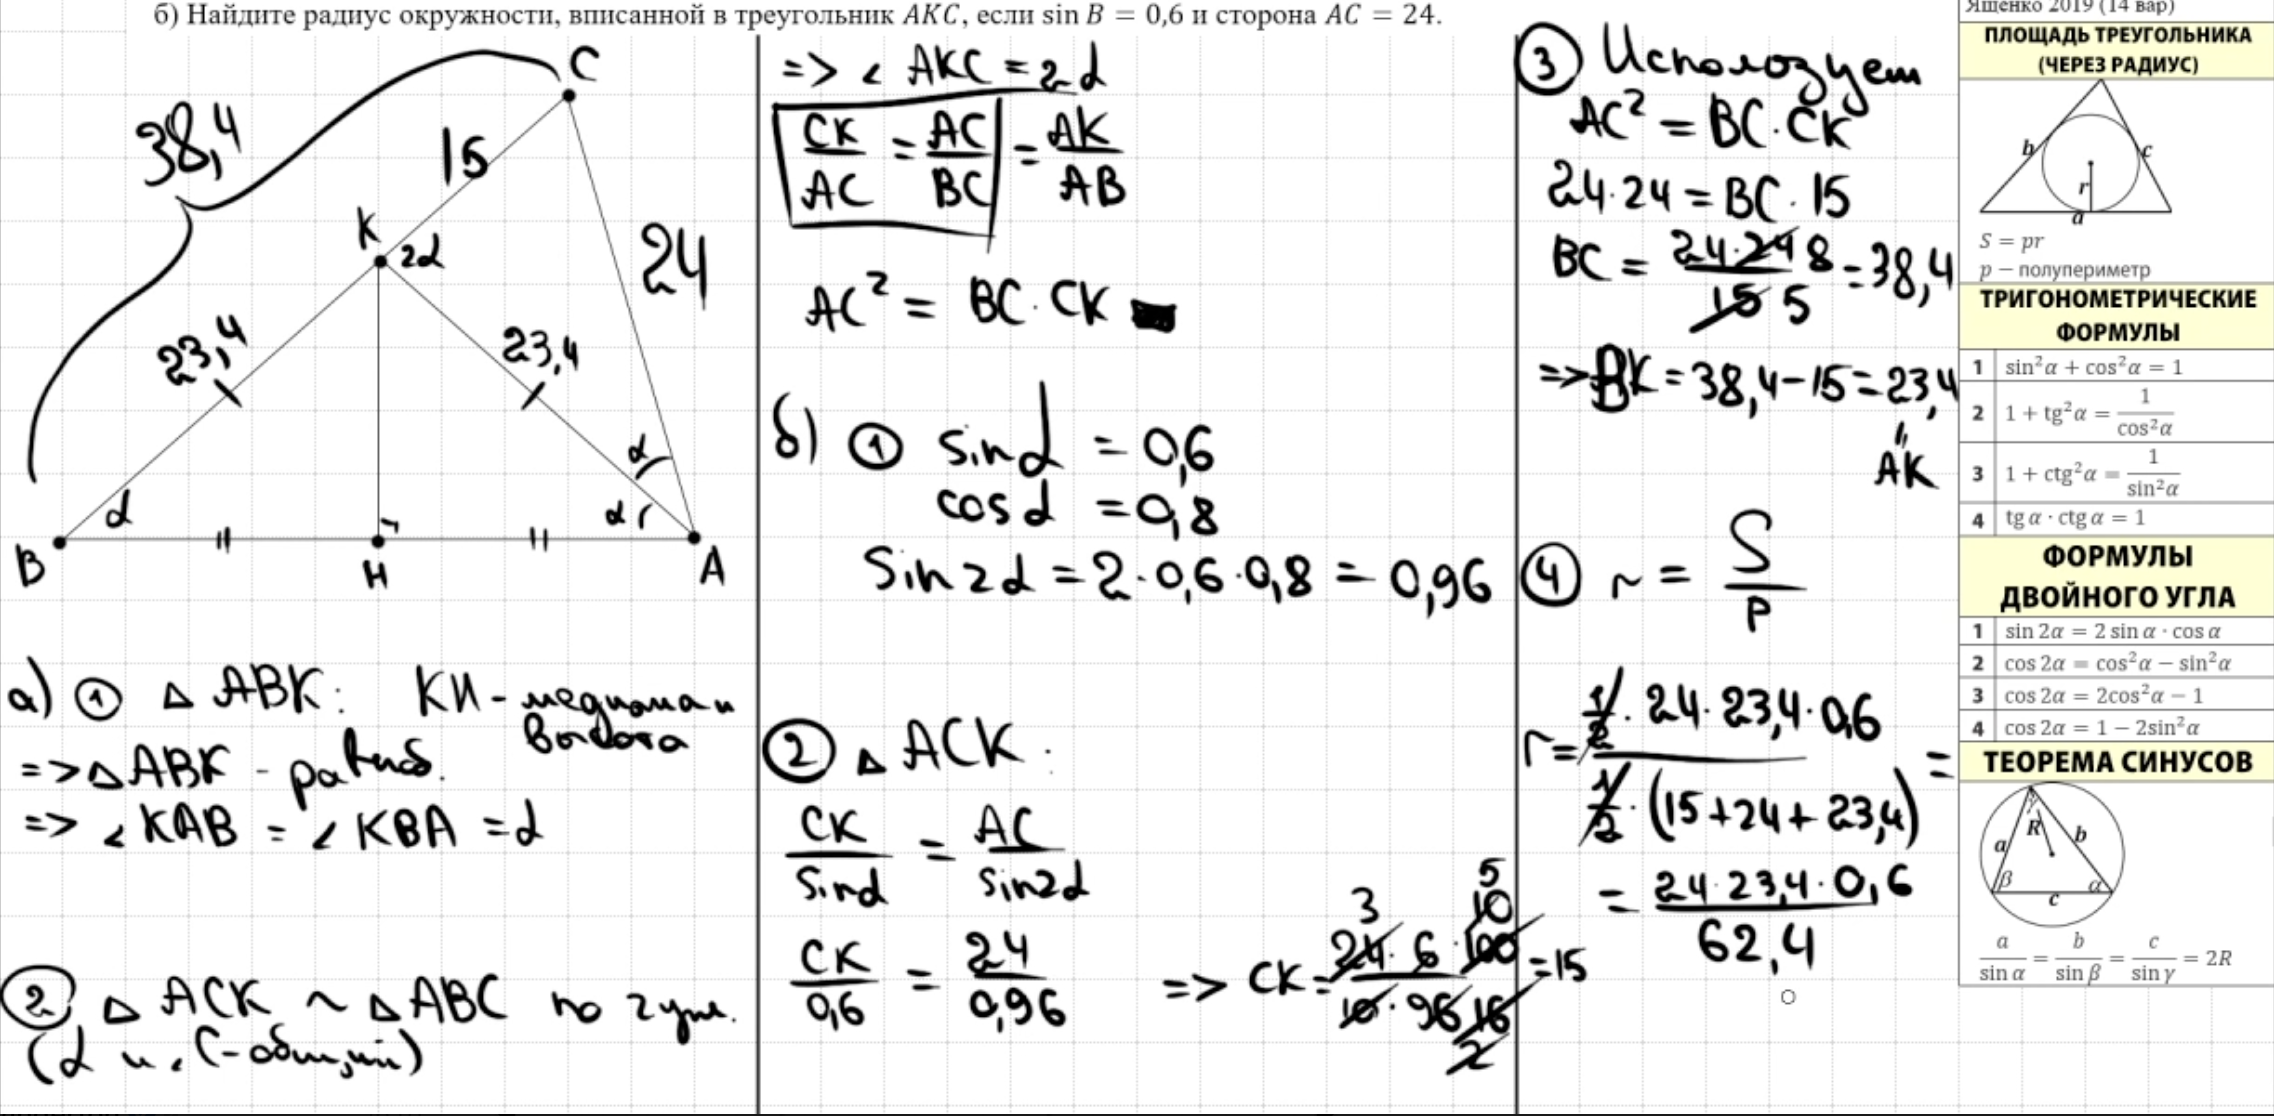 б) Найдите радиус окружности, вписанной в треугольник AKC, если sin B = 0,6 и сторона AC = 24.
C
38,4
15
K
2α
24
23,4
23,4
α
α
α
B
H
A
а) ① △ ABK: KH - медиана и
высота
=> △ ABK - равноб.
=> ∠ KAB = ∠ KBA = α
② △ ACK ~ △ ABC по 2 угл.
(α и ∠C - общий)
=> ∠ AKC = 2α
CK/AC = AC/BC = AK/AB
AC² = BC · CK
б) ① sin α = 0,6
cos α = 0,8
Sin 2α = 2 · 0,6 · 0,8 = 0,96
② △ ACK:
CK/sin α = AC/sin 2α
CK/0,6 = 24/0,96 => CK = 24 · 6 · 100/10 · 96 = 15
3 5 10 16 2
③ Используем
AC² = BC · CK
24 · 24 = BC · 15
BC = 24 · 24 8/15 5 = 38,4
=> BK = 38,4 - 15 = 23,4
"
AK
④ r = S/p
r = 1/2 · 24 · 23,4 · 0,6/1/2 · (15 + 24 + 23,4) =
= 24 · 23,4 · 0,6/62,4
Ященко 2019 (14 вар)
ПЛОЩАДЬ ТРЕУГОЛЬНИКА
(ЧЕРЕЗ РАДИУС)
b c
r
a
S = pr
p − полупериметр
ТРИГОНОМЕТРИЧЕСКИЕ
ФОРМУЛЫ
1 sin²α + cos²α = 1
2 1 + tg²α = 1/cos²α
3 1 + ctg²α = 1/sin²α
4 tg α · ctg α = 1
ФОРМУЛЫ
ДВОЙНОГО УГЛА
1 sin 2α = 2 sin α · cos α
2 cos 2α = cos²α − sin²α
3 cos 2α = 2cos²α − 1
4 cos 2α = 1 − 2sin²α
ТЕОРЕМА СИНУСОВ
γ
R
a b
β α
c
a/sin α = b/sin β = c/sin γ = 2R